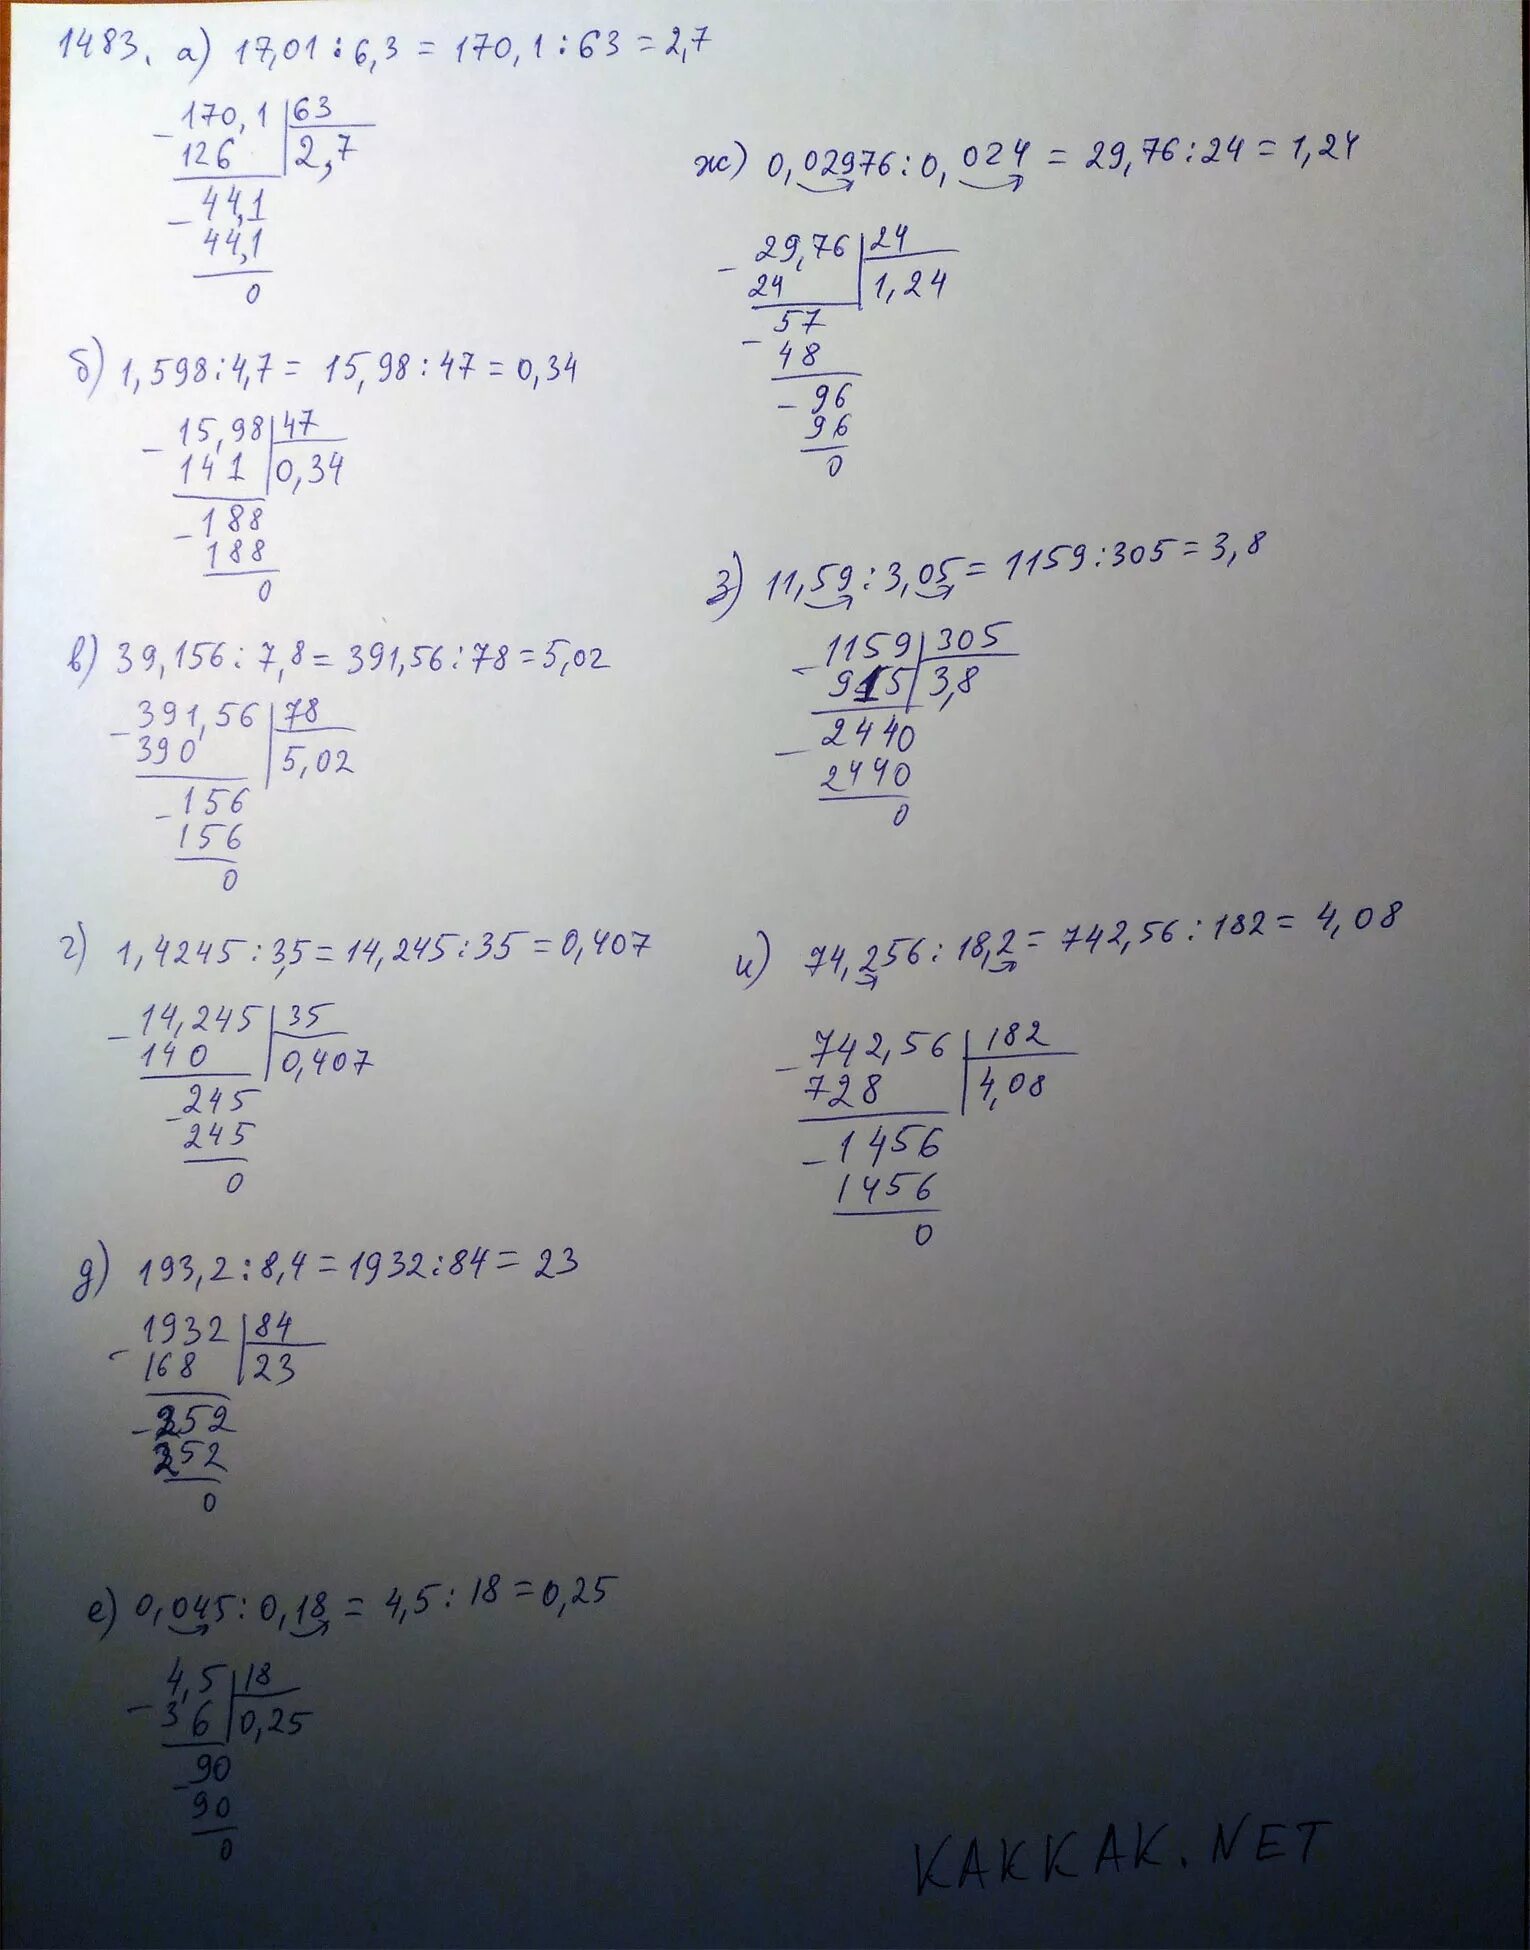 1483. а) 17,01 : 6,3 = 170,1 : 63 = 2,7
170,1 | 63
- 126 | 2,7
44,1
- 44,1
0
б) 1,598 : 4,7 = 15,98 : 47 = 0,34
15,98 | 47
- 141 | 0,34
188
- 188
0
в) 39,156 : 7,8 = 391,56 : 78 = 5,02
391,56 | 78
- 390 | 5,02
156
- 156
0
г) 1,4245 : 3,5 = 14,245 : 35 = 0,407
14,245 | 35
- 140 | 0,407
245
- 245
0
д) 193,2 : 8,4 = 1932 : 84 = 23
1932 | 84
- 168 | 23
252
- 252
0
е) 0,045 : 0,18 = 4,5 : 18 = 0,25
4,5 | 18
- 36 | 0,25
90
- 90
0
ж) 0,02976 : 0,024 = 29,76 : 24 = 1,24
29,76 | 24
- 24 | 1,24
57
- 48
96
- 96
0
з) 11,59 : 3,05 = 1159 : 305 = 3,8
1159 | 305
- 915 | 3,8
2440
- 2440
0
и) 74,256 : 18,2 = 742,56 : 182 = 4,08
742,56 | 182
- 728 | 4,08
1456
- 1456
0
KAKKAK.NET